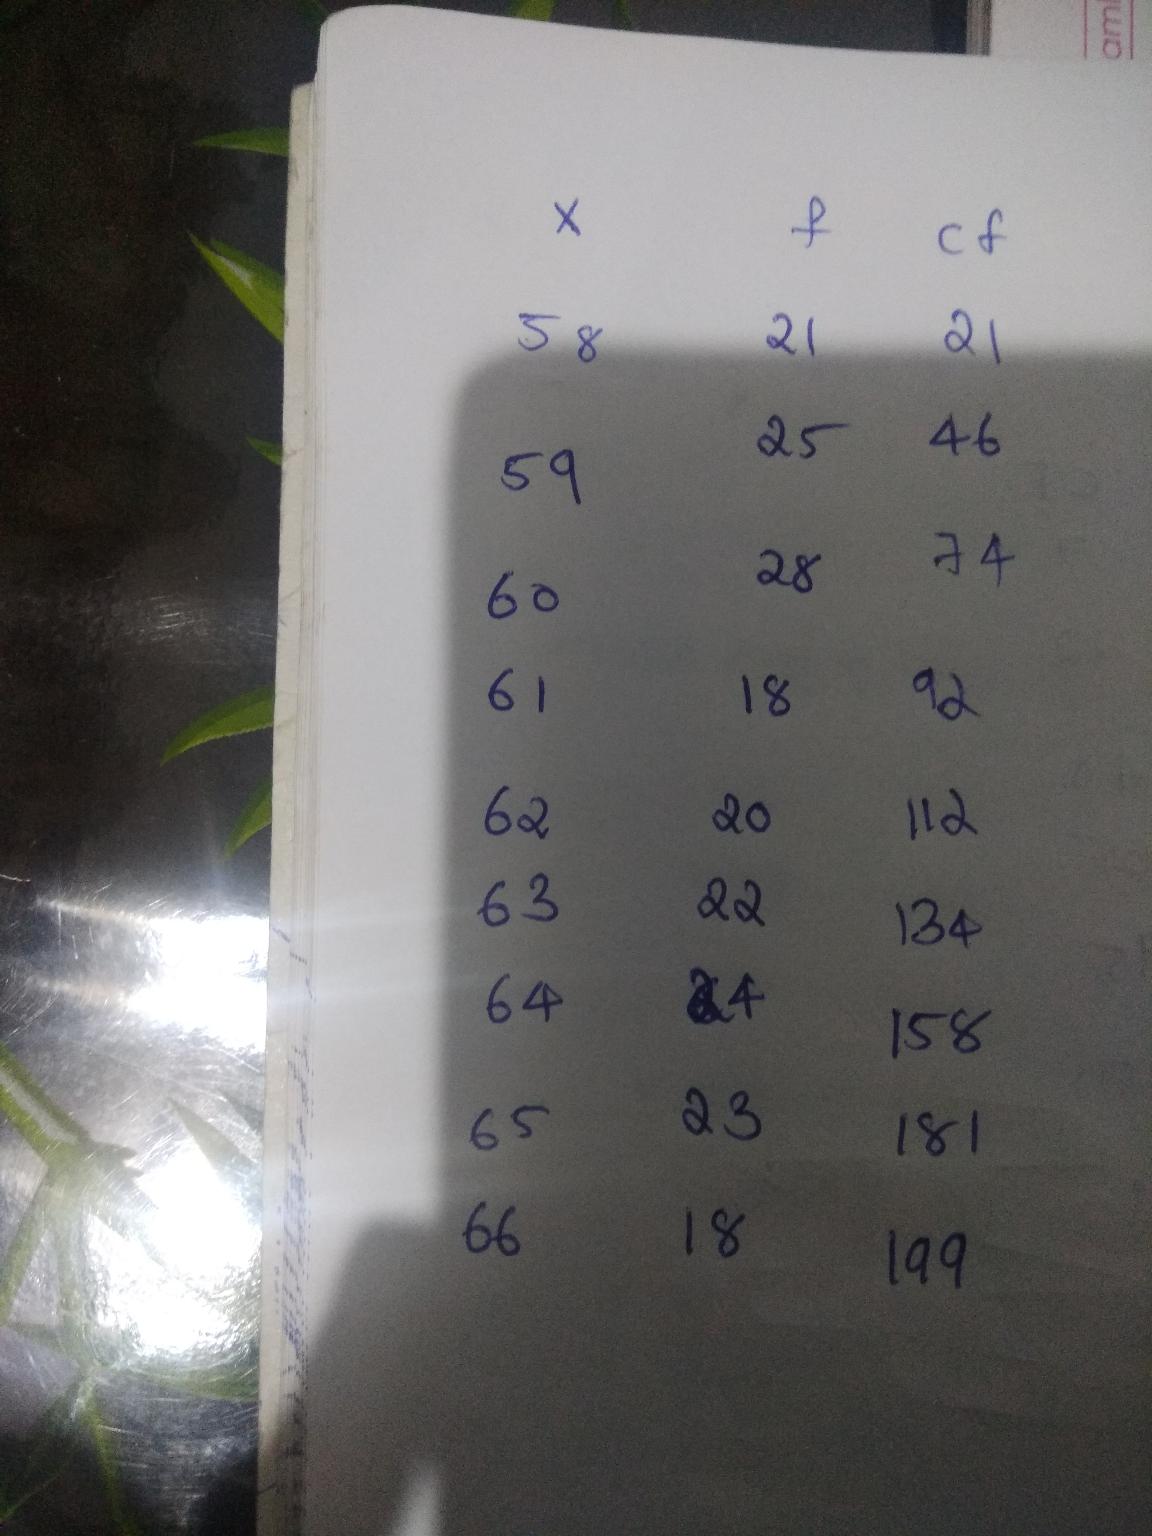 x f cf
58 21 21
59 25 46
60 28 74
61 18 92
62 20 112
63 22 134
64 24 158
65 23 181
66 18 199